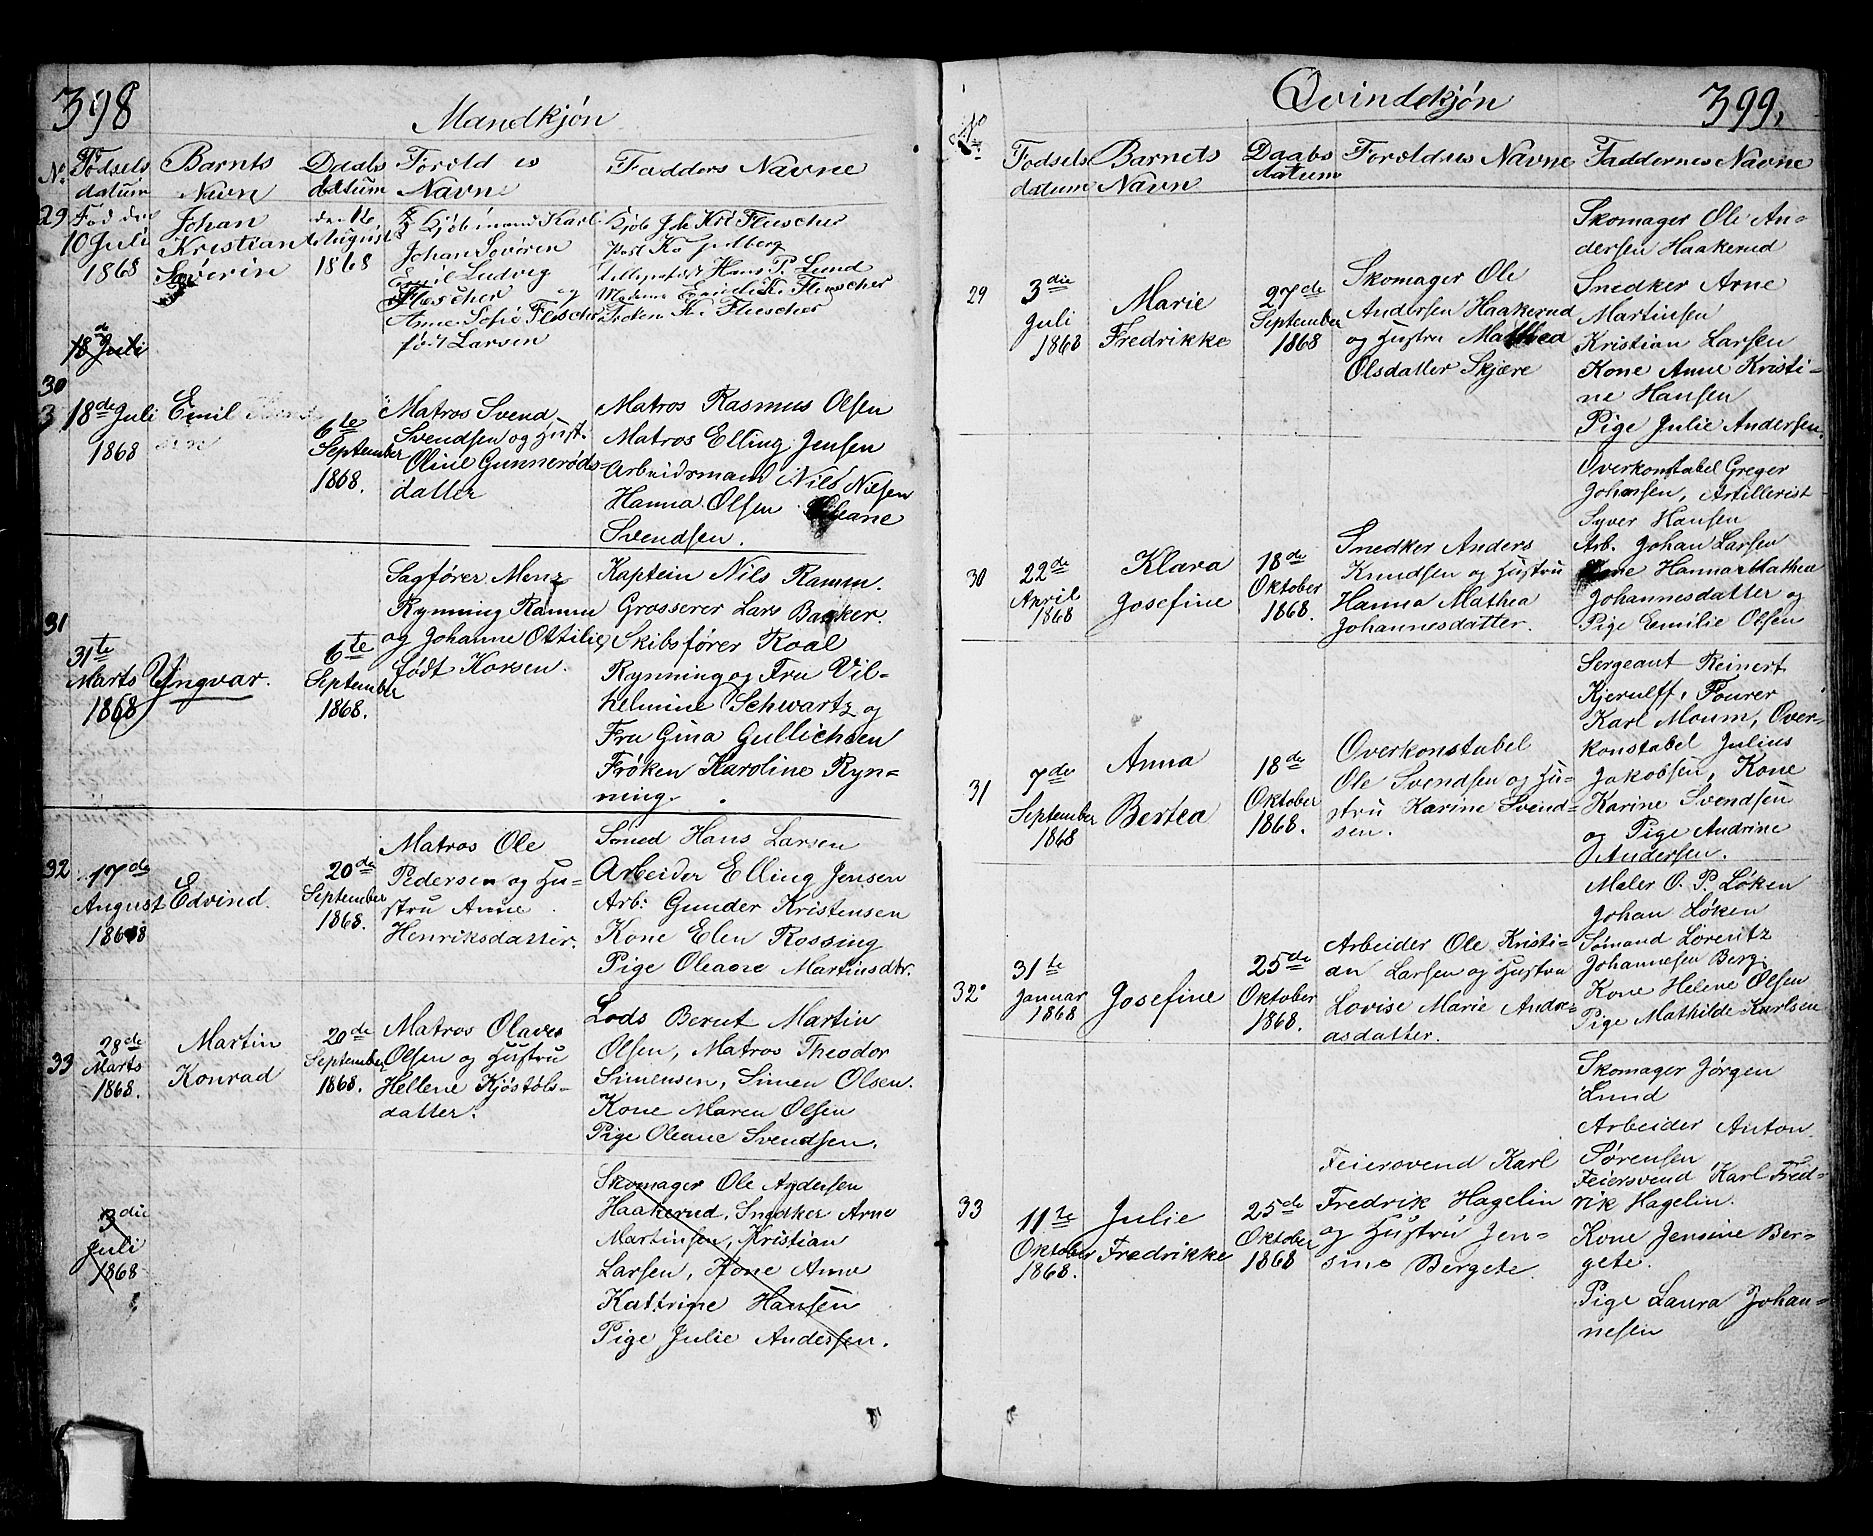 398
Mandkjön
No Födsels datum
Barnets Navn
Daabs datum
Forold es Navne
Fadders Navne
29
Fød den
10 Juli
1868
Johan
Kristian
Severin
den 16
August
1868
Kjöbmand Karl
Johan Severin
Emil Ludvig
Fleischer og
Anne Sofie Fleischer
född Larsen
Kjöb Joh Kr Fleischer
Hans P. Lund
Madame Emilie K. Fleischer
Fröken K. Fleischer
18de Juli
30
3
18de Juli
1868
Emil
6te
September
1868.
Matros Svend
Svendsen og Hust.
Oline Gunneröds-
datter
Matros Rasmus Olsen
Matros Elling Jensen
Arbeidsmand Nils Nilsen
Hanna Olsen Oleane
Svendsen.
31
31te
Marts
1868
Yngvar.
6te
September
1868.
Sagförer Menz
Rynning Ramm
og Johanne Ottilie,
född Korsen.
Kaptein Nils Ramm.
Grosserer Lars Backer.
Skibsförer Roal
Rynning og Fru Vil-
helmine Schwartz og
Fru Gina Gullichsen
Fröken Karoline Ryn-
ning.
32
17de
August
1868
Edvind.
20de
September
1868.
Matros Ole
Pedersen og Hu-
stru Anne
Henriksdatter.
Smed Hans Larsen
Arbeider Elling Jensen
Arb: Gunder Kristensen
Kone Elen Rossing
Pige Oleane Martinsdtr.
33
28de
Marts
1868.
Martin
Konrad
20de
September
1868.
Matros Olaves
Olsen og Hustru
Hellene Kjöstöls-
datter.
Lods Berut Martin
Olsen, Matros Theodor
Simensen, Simen Olsen.
Kone Maren Olsen
Pige Oleane Svendsen.
3die
Juli
1868
Skomager Ole Andersen
Haakerud, Snedker Arne
Martinsen, Kristian
Larsen, Kone Anne
Kattrine Hansen
Pige Julie Andersen.
Qvindekjön
399.
No
Fodsels datum
Barnets Navn
Daabs datum
Foroldres Navne
Faddernes Navne
29
3die
Juli
1868
Marie
Fredrikke
27de
September
1868
Skomager Ole
Andersen Haakerud
og Hustru Mathea
Olsdatter Skjære
Skomager Ole An-
dersen Haakerud
Snedker Arne
Martinsen
Kristian Larsen
Kone Anne Kristi-
ne Hansen
Pige Julie Andersen.
30
22de
April
1868
Klara
Josefine
18de
Oktober
1868.
Snedker Anders
Knudsen og Hustru
Hanna Mathea
Johannesdatter.
Overkonstabel Greger
Johansen, Artillerist
Syver Hansen
Arb. Johan Larsen
Kone Hanna Mathea
Johannesdatter og
Pige Emilie Olsen
31
7de
September
1868
Anna
Bertea
18de
Oktober
1868.
Overkonstabel
Ole Svendsen og Hu-
stru Karine Svend-
sen.
Sergeant Reinert
Kjerulff, Fourer
Karl Moum, Over-
konstabel Julius
Jakobsen, Kone
Karine Svendsen
og Pige Andrine
Andersen.
32
31te
Januar
1868
Josefine
25de
Oktober
1868.
Arbeider Ole Kristi-
an Larsen og Hustru
Lovise Marie Andre-
asdatter.
Maler O. P. Løken
Johan Løken
Sömand Lorentz
Johannesen Berg
Kone Helene Olsen
Pige Mathilde Karlsen
33
11te
Oktober
1868.
Julie
Fredrikke
25de
Oktober
1868
Feiersvend Karl
Fredrik Hagelin
og Hustru Jen-
sine Bergete.
Skomager Jørgen
Lund
Arbeider Anton
Sørensen
Feiersvend Karl Fred-
rik Hagelin.
Kone Jensine Ber-
gete.
Pige Laura Johan-
nesen